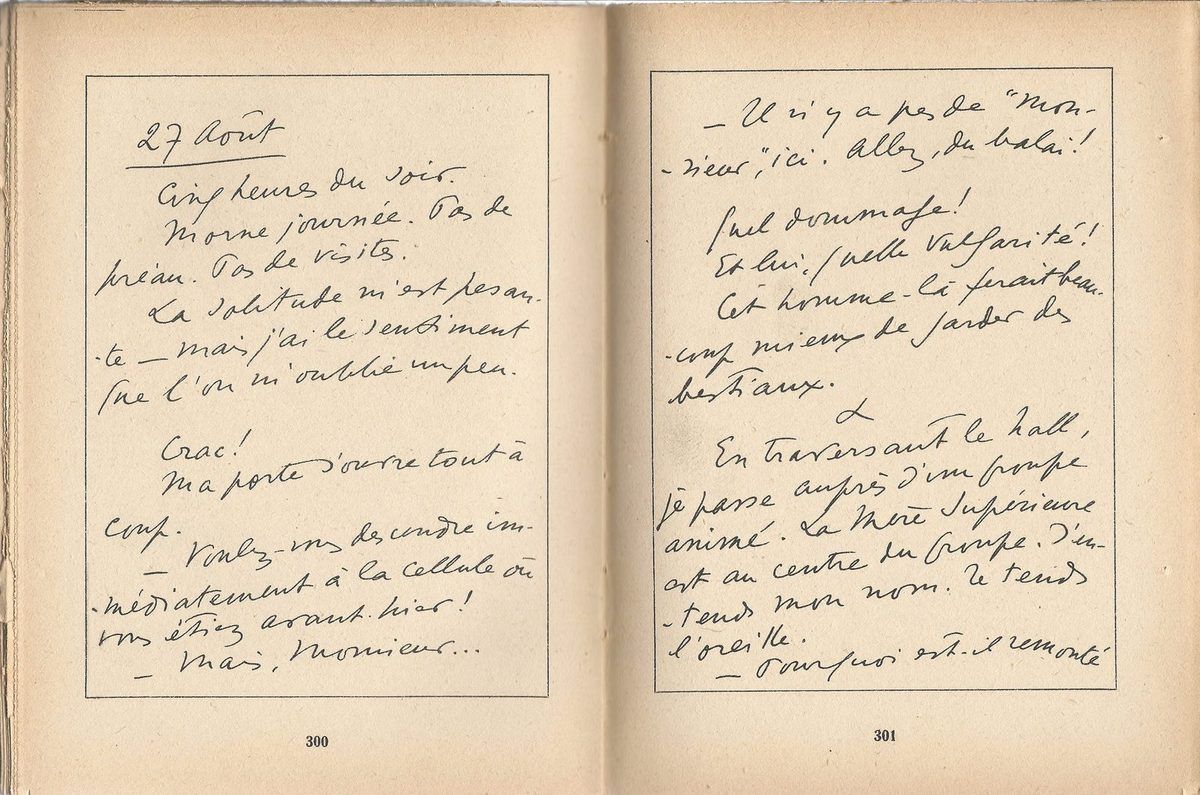 27 Août
Cinq heures du soir.
Morne journée. Pas de
préau. Pas de visites.
La solitude m'est pesan-
-te — mais j'ai le sentiment
que l'on m'oublie un peu.
Crac!
Ma porte s'ouvre tout à
coup.
— Voulez-vous descendre im-
-médiatement à la cellule où
vous étiez avant-hier!
— Mais, Monsieur...
300
— Il n'y a pas de "Mon-
-sieur", ici. Allez, du balai!
Quel dommage!
Et lui, quelle vulgarité!
Cet homme-là ferait beau-
-coup mieux de garder des
bestiaux.
En traversant le hall,
je passe auprès d'un groupe
animé. La Mère Supérieure
est au centre du groupe. J'en-
-tends mon nom. Je tends
l'oreille.
— Pourquoi est-il remonté
301